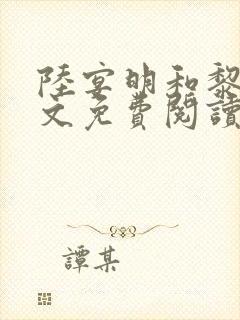 陸宴明和黎
文免費閱讀
譚某